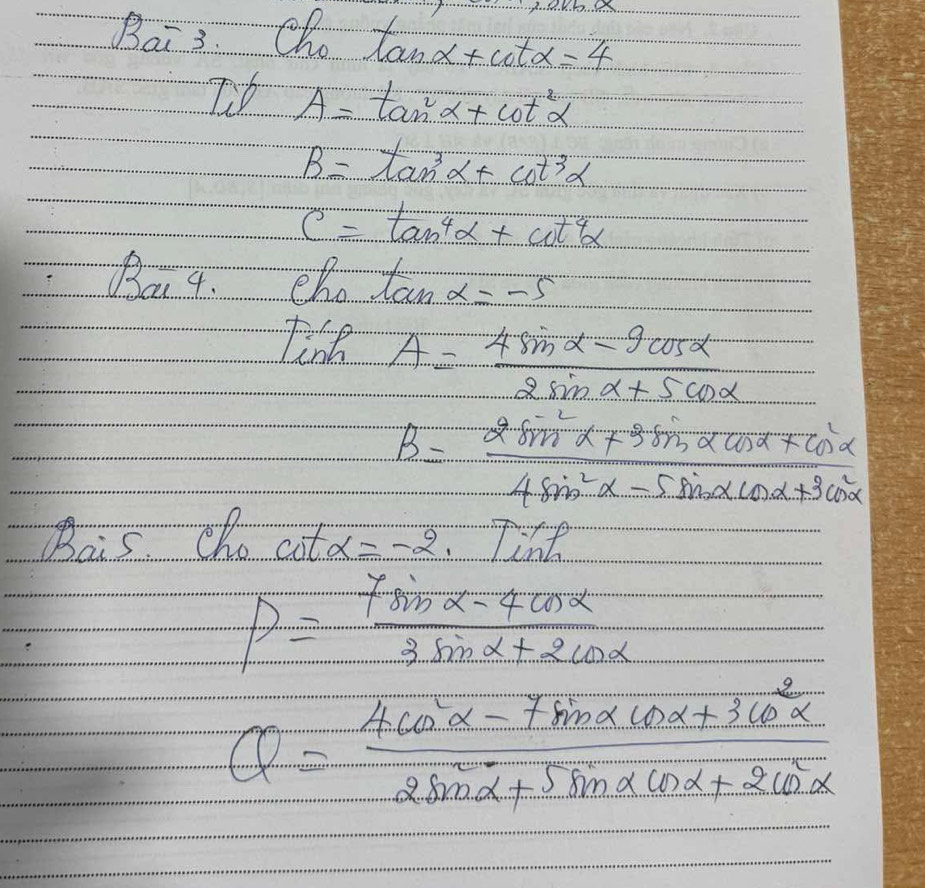 Bài 3. Cho tanα + cotα = 4
A = tan²α + cot²α
B = tan³α + cot³α
C = tan⁴α + cot⁴α
Bài 4. Cho tan α = -5
Tính A = (4 sin α - 9 cosα) / (2 sin α + 5 cosα)
B = (2 sin²α + 3 sin α cosα + cos²α) / (4 sin²α - 5 sinα cosα + 3 cos²α)
Bài 5. Cho cotα = -2. Tính
P = (7 sin α - 4 cosα) / (3 sin α + 2 cosα)
Q = (4 cos²α - 7 sinα cosα + 3 cos²α) / (2 sin²α + 5 sin α cosα + 2 cos²α)